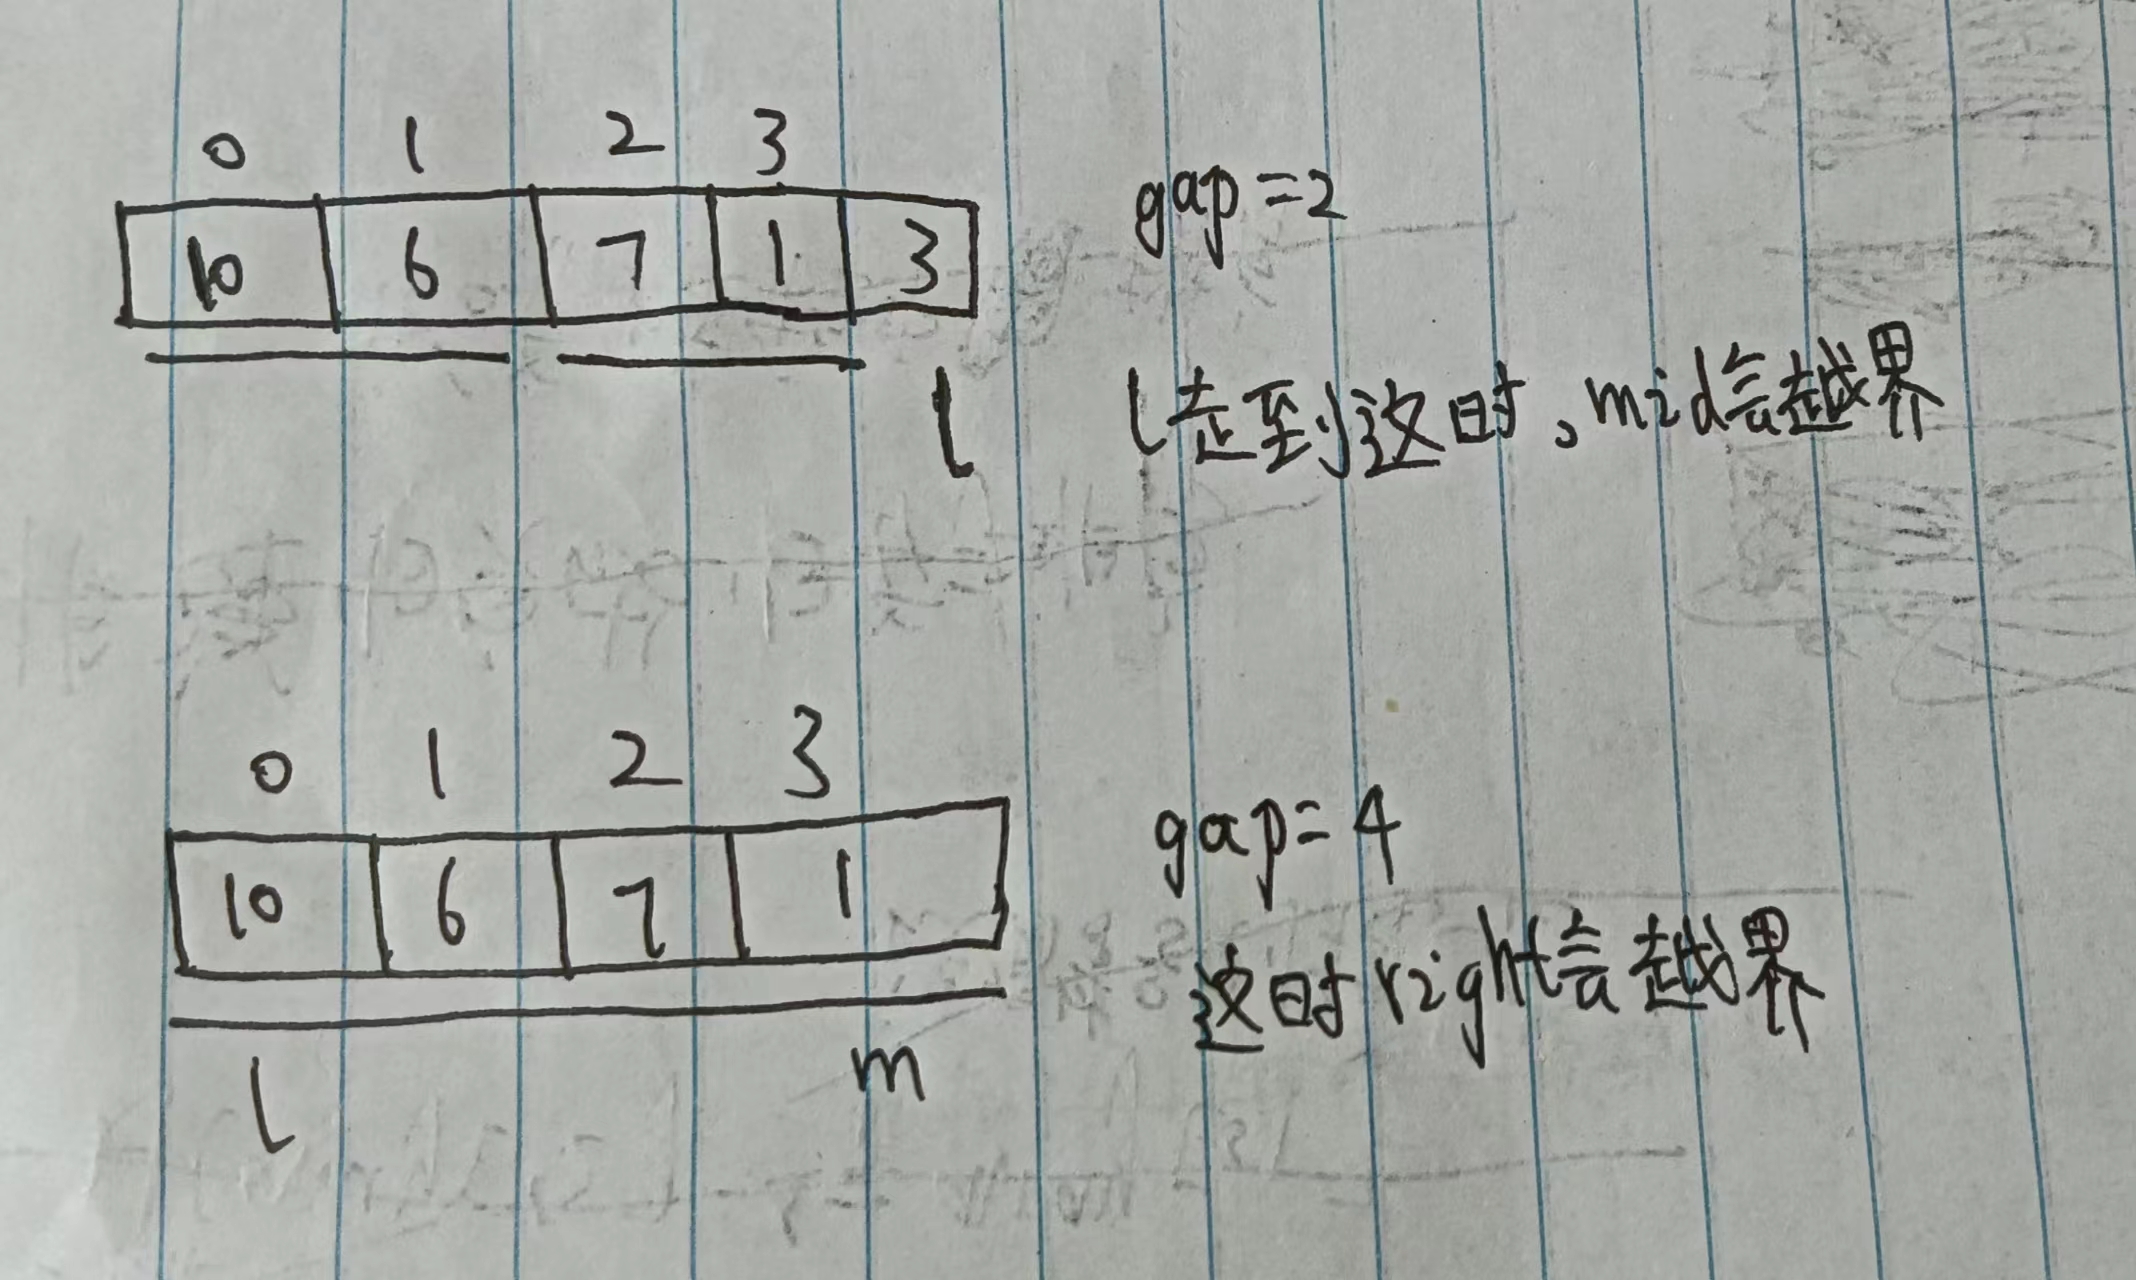 0 1 2 3
10 6 7 1 3
gap=2
l
l走到这时。mid会越界
0 1 2 3
10 6 7 1
gap=4
这时right会越界
l m